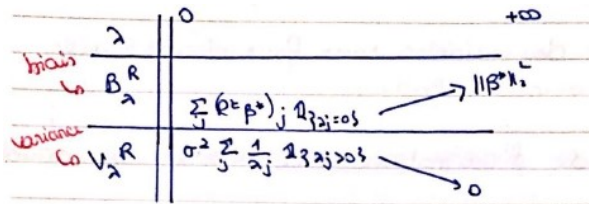 0 +∞
λ
biais
↳ B_λ^R ∑_j (P^t β*)_j 𝟙_{λj=0} ||β*||_2^2
variance
↳ V_λ^R σ² ∑_j 1/λj 𝟙_{λj>0} 0